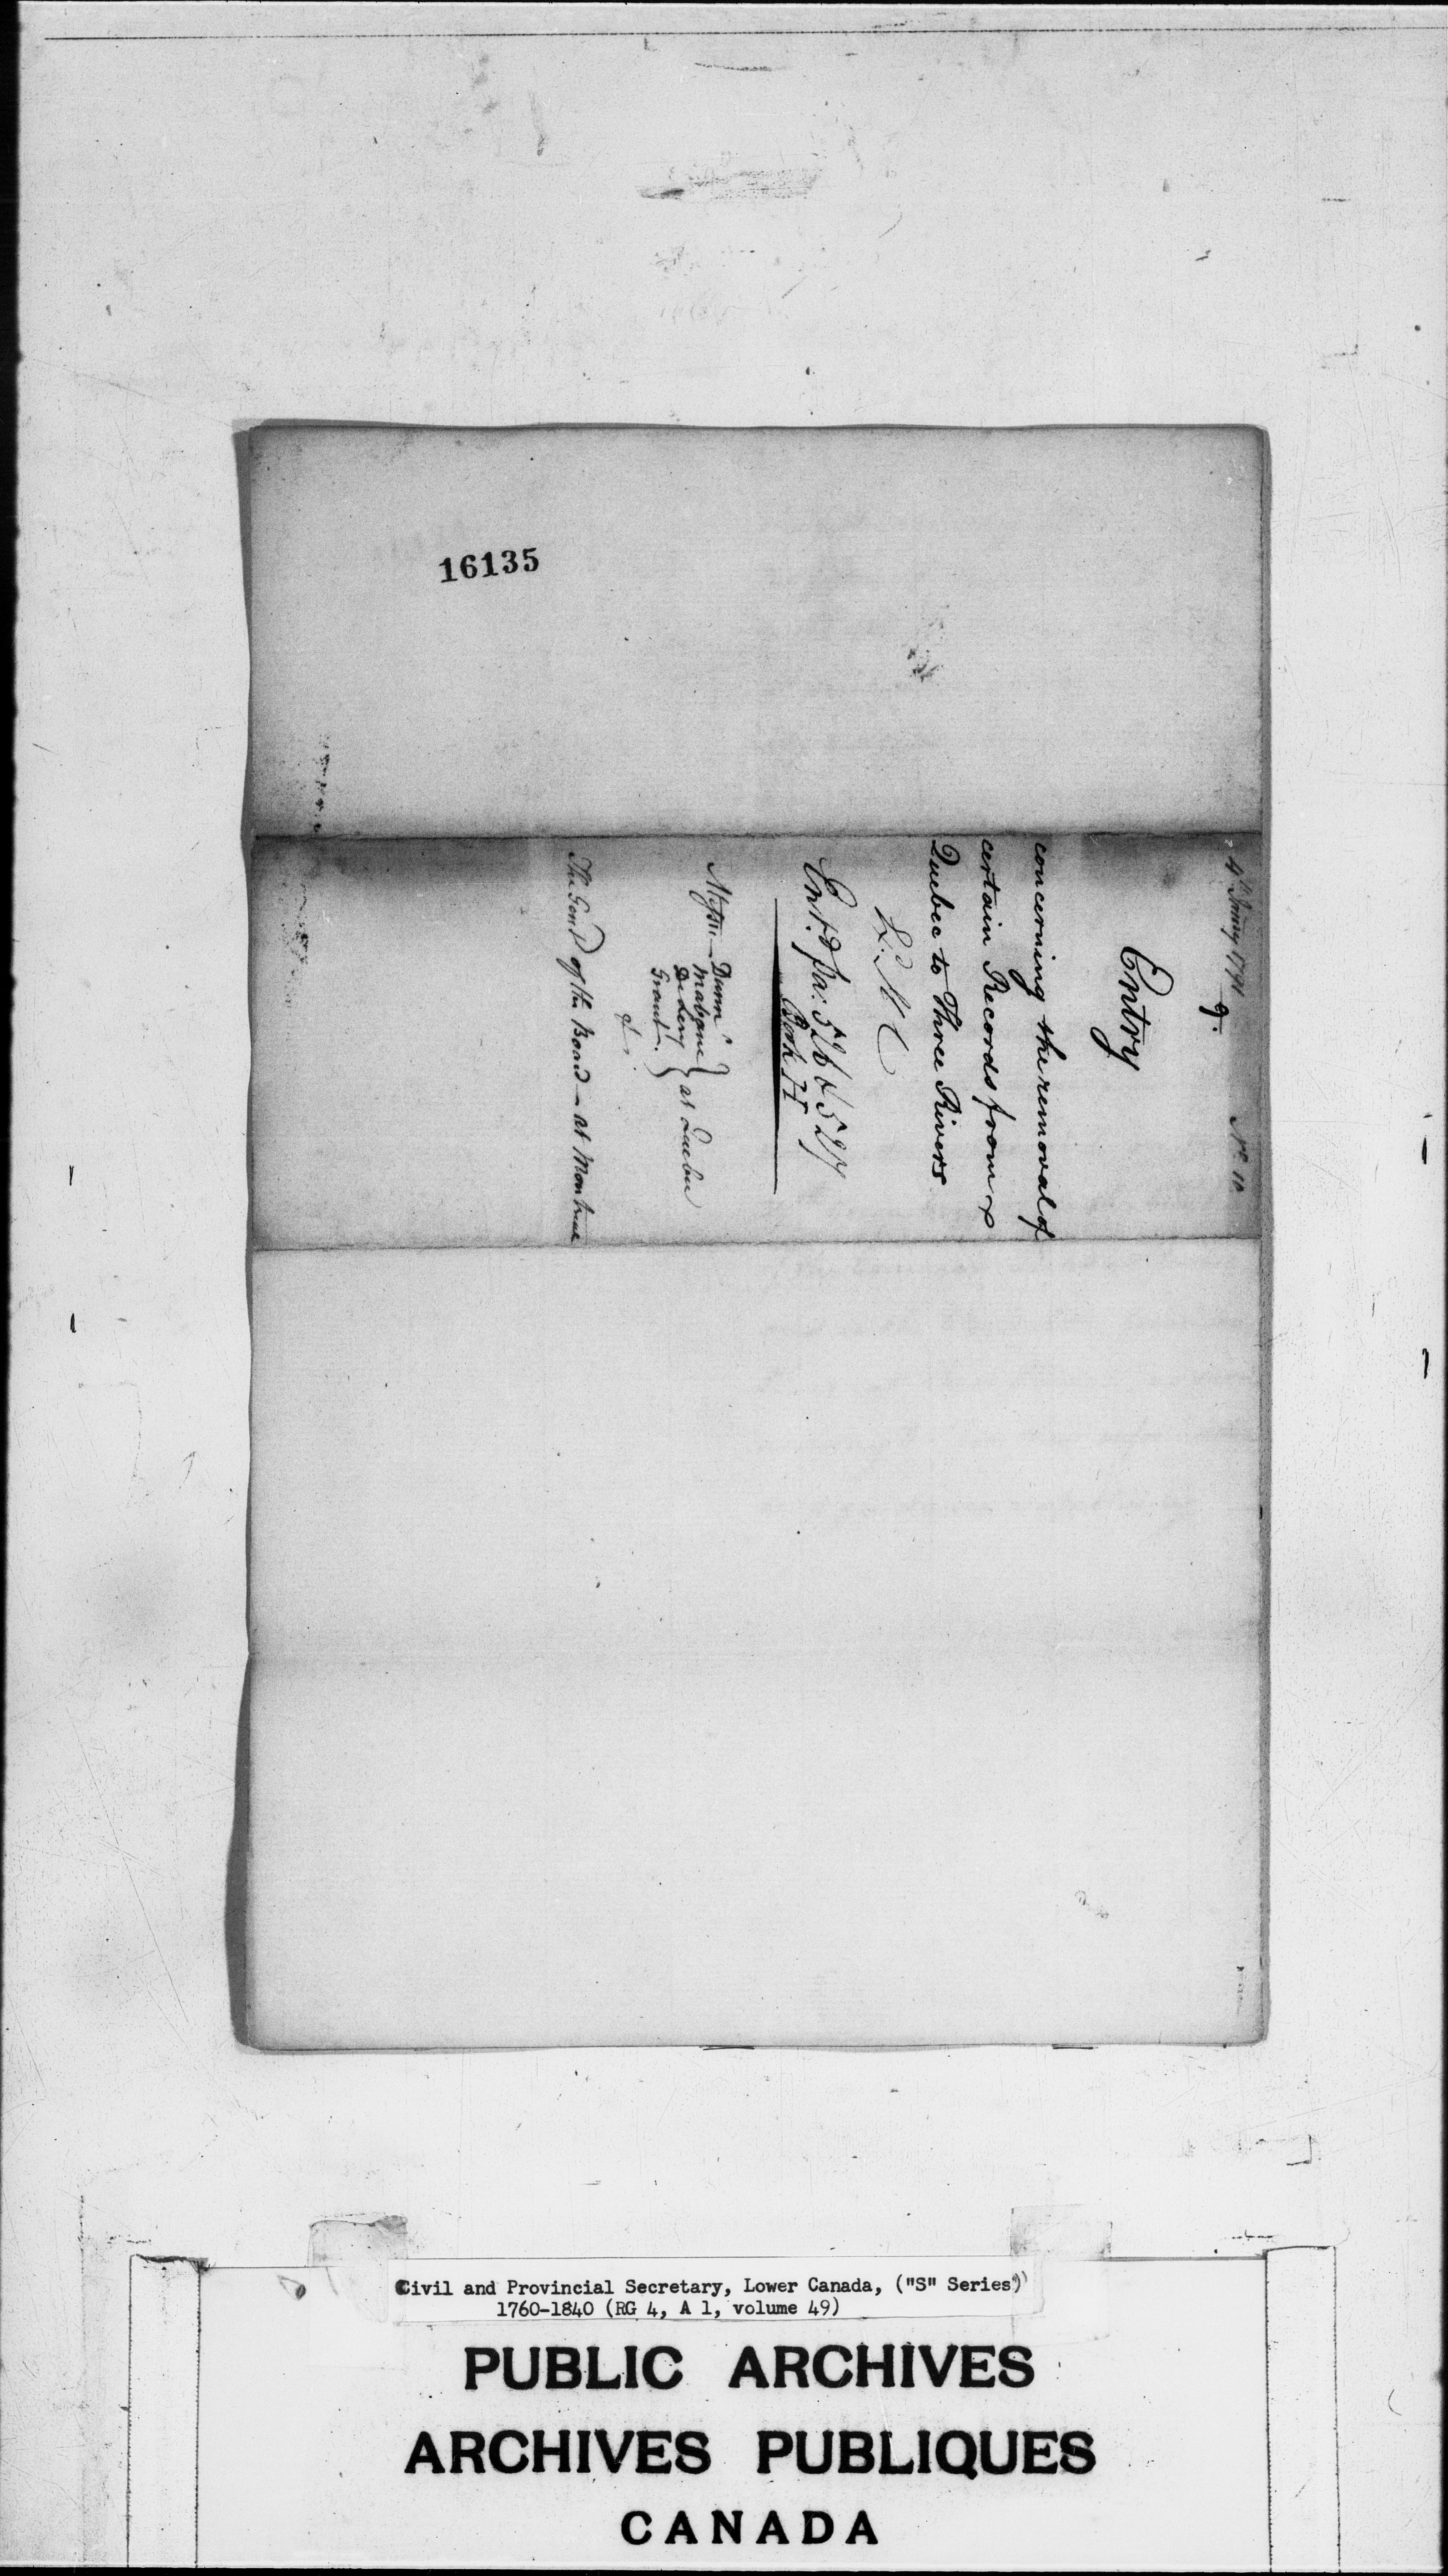 16135
4th Jany 1791 No. 10
9.
Entry
concerning the removal of
certain Records from &
Quebec to Three Rivers
L. M C
Entd. pa: 526 & 529
Book H
Messrs. — Dunn
Mabane
De Lery
Grant
at Quebec
&
The Gent. of the Board — at Montreal
Civil and Provincial Secretary, Lower Canada, ("S" Series)
1760-1840 (RG 4, A 1, volume 49)
PUBLIC ARCHIVES
ARCHIVES PUBLIQUES
CANADA